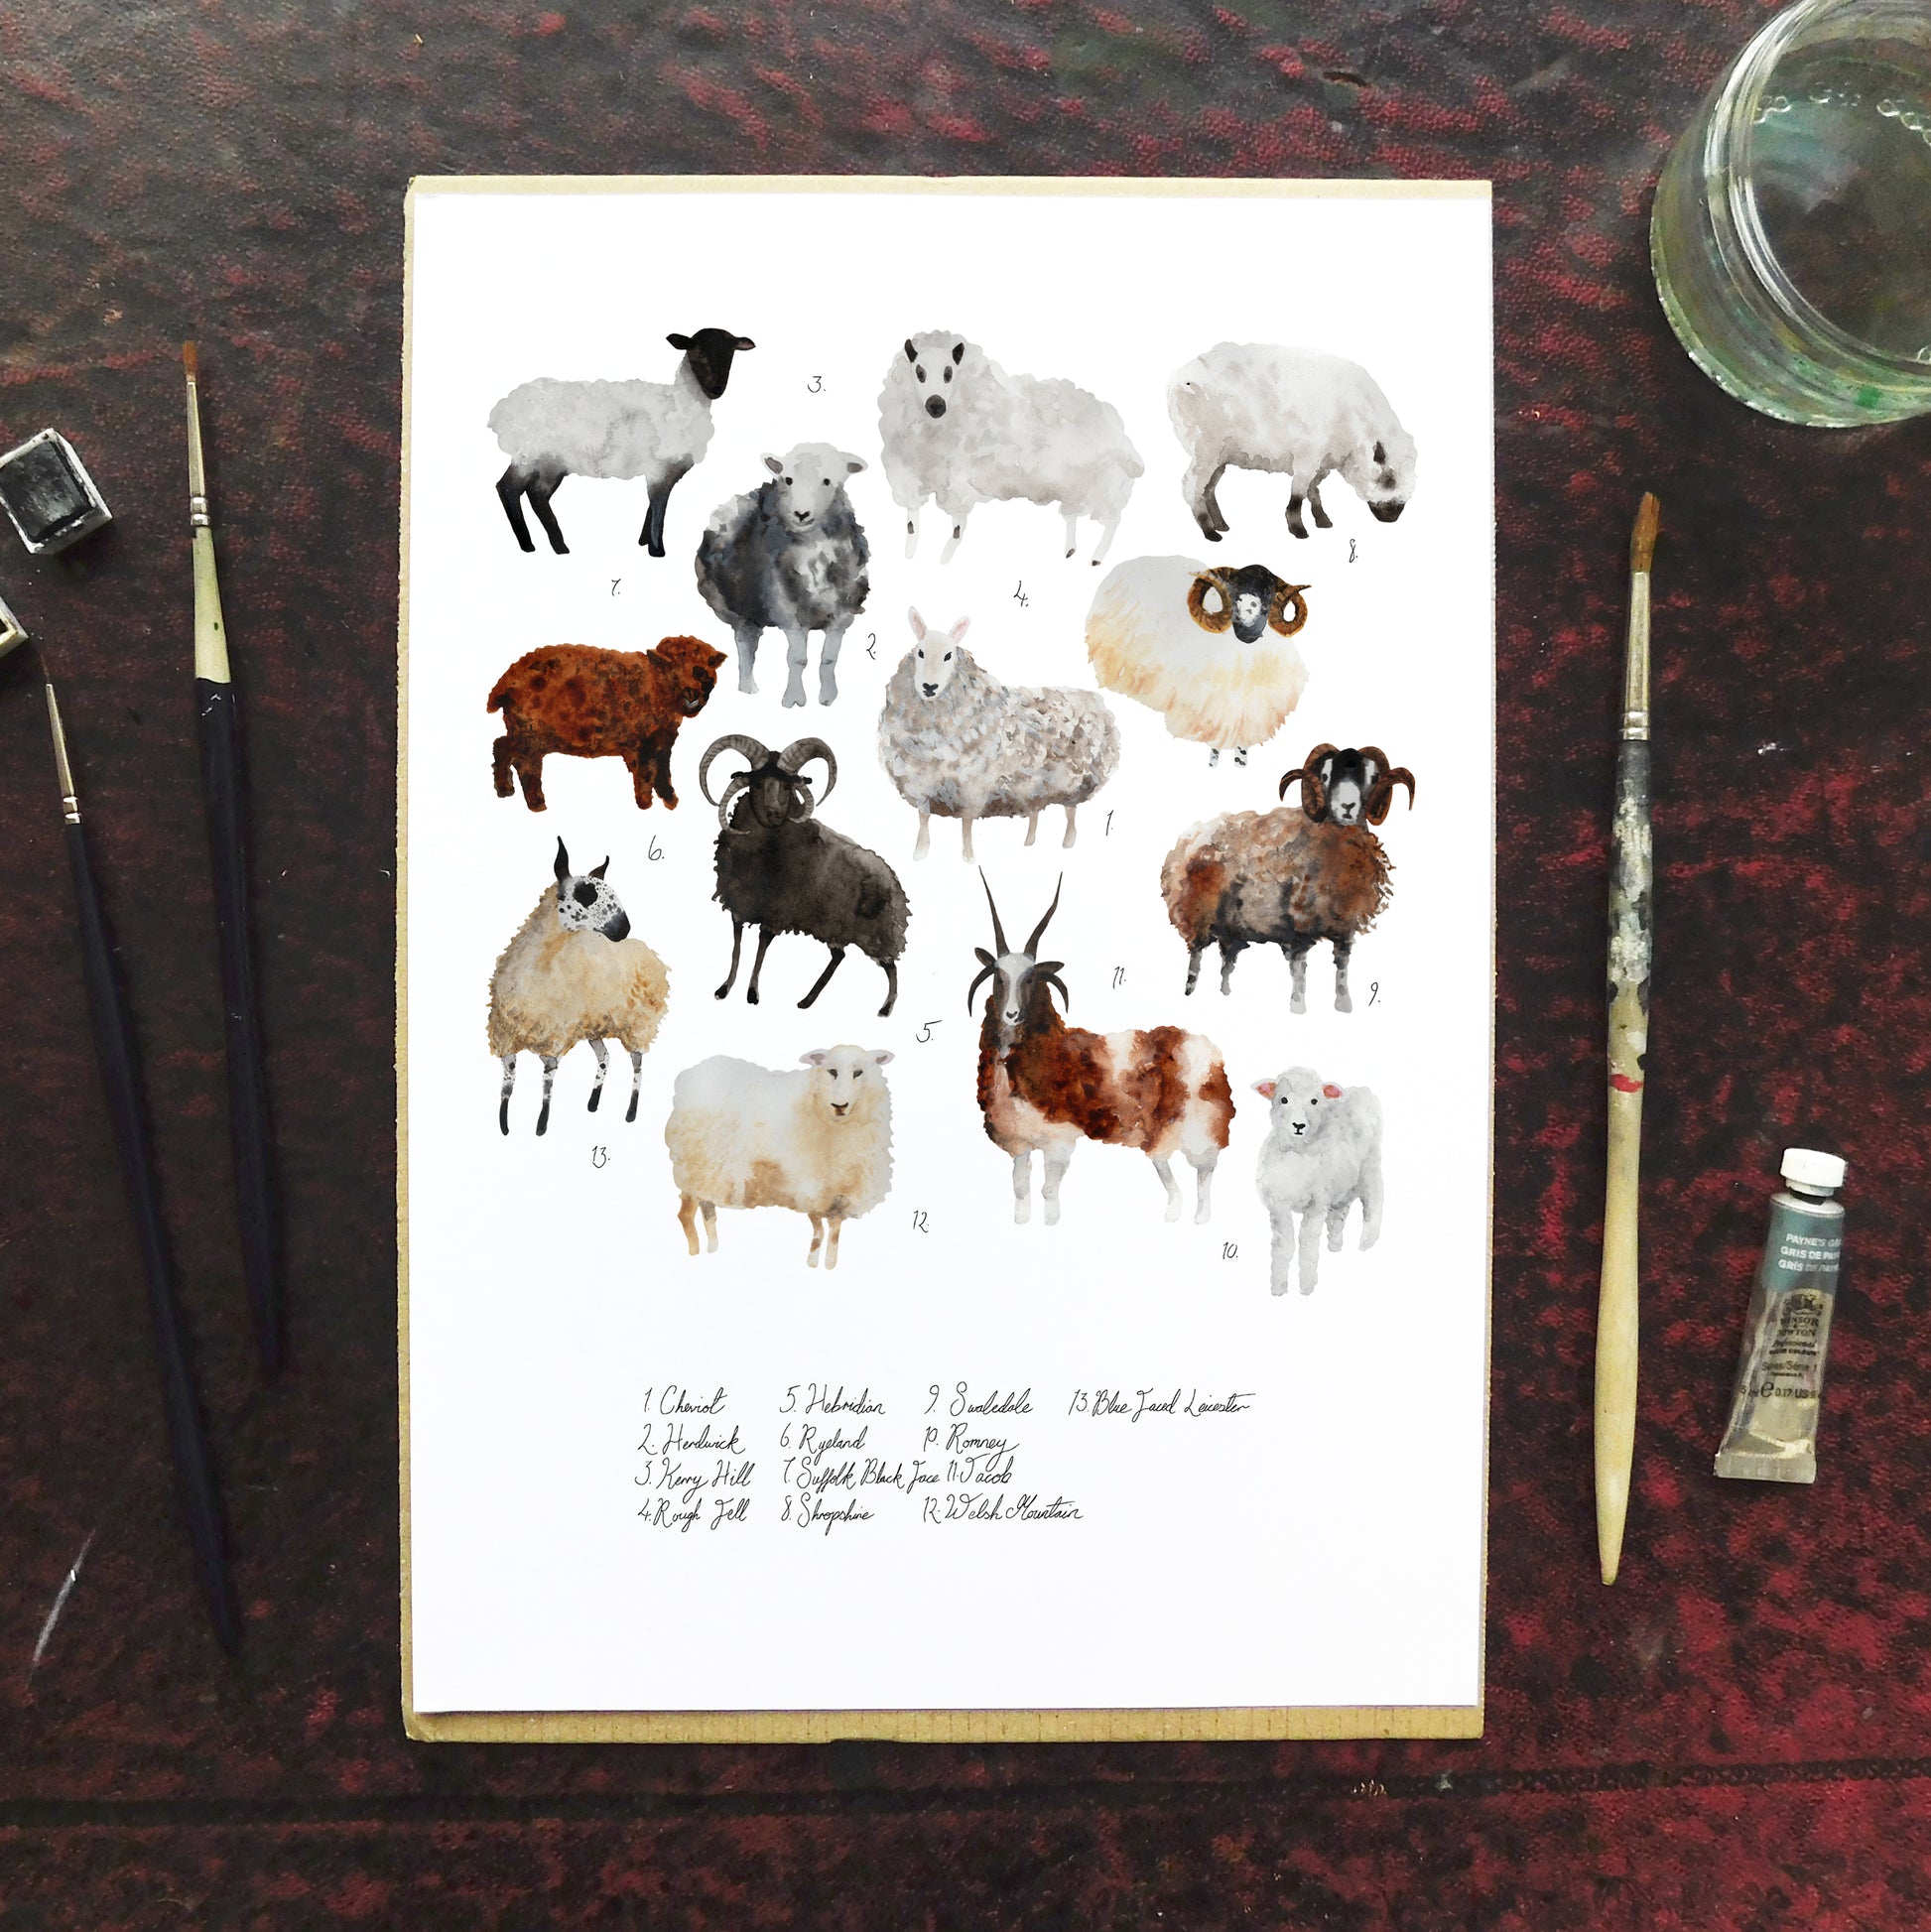 3.
8.
7.
4.
2.
1.
6.
11.
9.
5.
13.
12.
10.
1. Cheviot 5. Hebridian 9. Swaledale 13. Blue Faced Leicester
2. Herdwick 6. Ryeland 10. Romney
3. Kerry Hill 7. Suffolk Black Face 11. Jacob
4. Rough Fell 8. Shropshire 12. Welsh Mountain
PAYNE'S
GRIS DE
GRIS DE
WINSOR
NEWTON
Series/Série 1
0.17 US